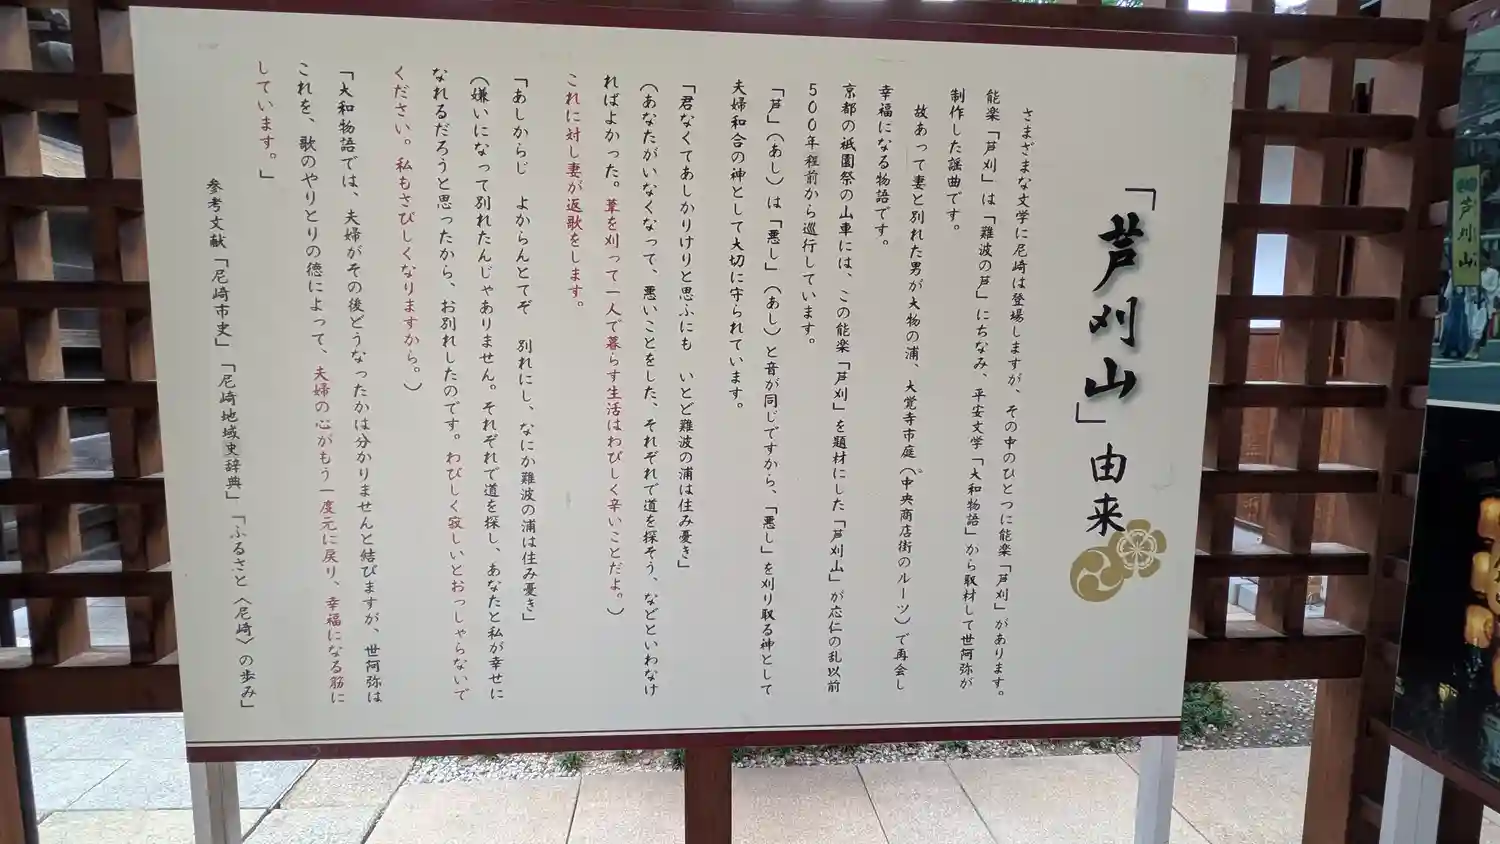 「芦刈山」由来
さまざまな文学に尼崎は登場しますが、その中のひとつに能楽「芦刈」があります。
能楽「芦刈」は「難波の芦」にちなみ、平安文学「大和物語」から取材して世阿弥が
制作した謡曲です。
故あって妻と別れた男が大物の浦、大覚寺市庭（中央商店街のルーツ）で再会し
幸福になる物語です。
京都の祇園祭の山車には、この能楽「芦刈」を題材にした「芦刈山」が応仁の乱以前
500年程前から巡行しています。
「芦」（あし）は「悪し」（あし）と音が同じですから、「悪し」を刈り取る神として
夫婦和合の神として大切に守られています。
「君なくてあしかりけりと思ふにも　いとど難波の浦は住み憂き」
（あなたがいなくなって、悪いことをした、それぞれで道を探そう、などといわなけ
ればよかった。葦を刈って一人で暮らす生活はわびしく辛いことだよ。）
これに対し妻が返歌をします。
「あしからじ　よからんとてぞ　別れにし、なにか難波の浦は住み憂き」
（嫌いになって別れたんじゃありません。それぞれで道を探し、あなたと私が幸せに
なれるだろうと思ったから、お別れしたのです。わびしく寂しいとおっしゃらないで
ください。私もさびしくなりますから。）
「大和物語では、夫婦がその後どうなったかは分かりませんと結びますが、世阿弥は
これを、歌のやりとりの徳によって、夫婦の心がもう一度元に戻り、幸福になる筋に
しています。」
参考文献「尼崎市史」「尼崎地域史辞典」「ふるさと〈尼崎〉の歩み」
芦刈山